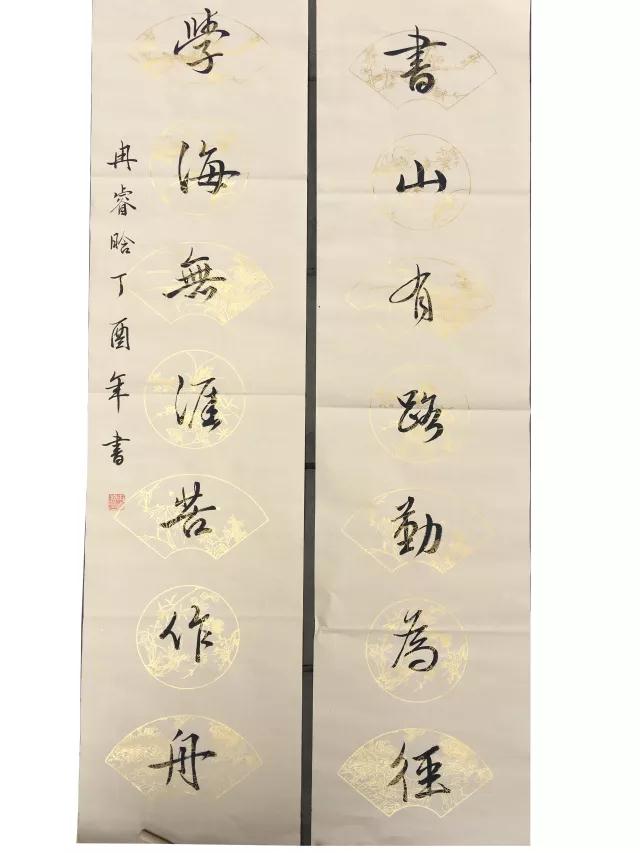 書山有路勤為徑
學海無涯苦作舟
冉睿晗丁酉年書